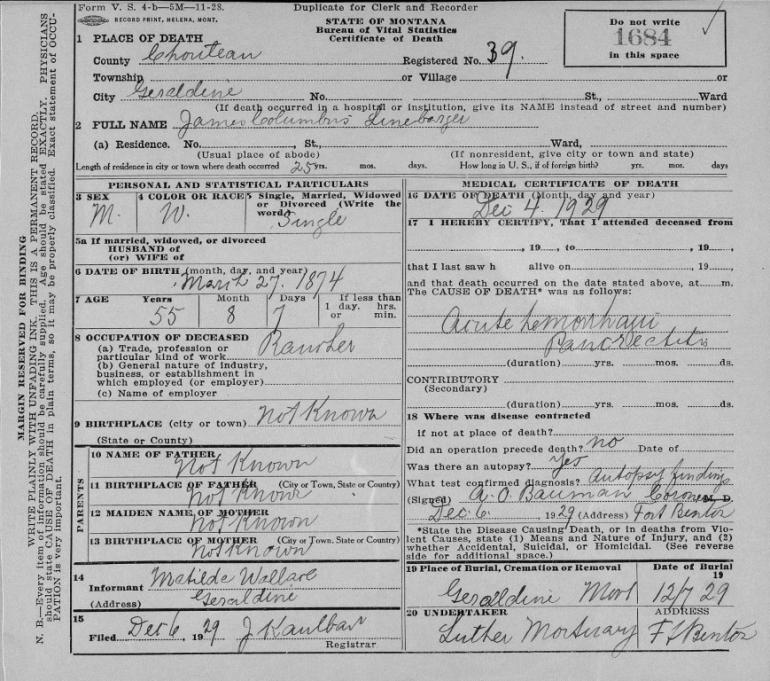 Form V. S. 4-b—5M—11-28.
Duplicate for Clerk and Recorder
RECORD PRINT, HELENA, MONT.
STATE OF MONTANA
Bureau of Vital Statistics
Certificate of Death
Do not write
1684
in this space
1 PLACE OF DEATH
County Chouteau Registered No. 39.
Township or Village or
City Geraldine No. St., Ward
(If death occurred in a hospital or institution, give its NAME instead of street and number)
2 FULL NAME James Columbus Linebarger
(a) Residence. No. , St., Ward,
(Usual place of abode) (If nonresident, give city or town and state)
Length of residence in city or town where death occurred 25 yrs. mos. days. How long in U. S., if of foreign birth? yrs. mos. days.
PERSONAL AND STATISTICAL PARTICULARS
3 SEX M.
4 COLOR OR RACE W.
5 Single, Married, Widowed or Divorced (Write the word) Single
5a If married, widowed, or divorced
HUSBAND of
(or) WIFE of
6 DATE OF BIRTH (month, day, and year)
March 27. 1874
7 AGE Years Month Days If less than
55 8 7 1 day, hrs.
or min.
8 OCCUPATION OF DECEASED
(a) Trade, profession or
particular kind of work Rancher
(b) General nature of industry,
business, or establishment in
which employed (or employer)
(c) Name of employer
9 BIRTHPLACE (city or town) Not Known
(State or County)
PARENTS
10 NAME OF FATHER
Not Known
11 BIRTHPLACE OF FATHER (City or Town, State or County)
Not Known
12 MAIDEN NAME OF MOTHER
Not Known
13 BIRTHPLACE OF MOTHER (City or Town, State or County)
Not Known
14
Informant Matilde Wallace
(Address) Geraldine
15
Filed Dec 6, 1929 J Kaulbach
Registrar
MEDICAL CERTIFICATE OF DEATH
16 DATE OF DEATH (Month, day and year)
Dec 4. 1929
17 I HEREBY CERTIFY, That I attended deceased from
, 19 , to , 19 ,
that I last saw h alive on , 19 ,
and that death occurred on the date stated above, at m.
The CAUSE OF DEATH* was as follows:
Acute hemorrhagic
Pancreatitis
(duration) yrs. mos. ds.
CONTRIBUTORY
(Secondary)
(duration) yrs. mos. ds.
18 Where was disease contracted
if not at place of death?
Did an operation precede death? no Date of
Was there an autopsy? Yes
What test confirmed diagnosis? Autopsy findings
(Signed) A. O. Bauman Coroner M. D.
Dec 6. 1929 (Address) Fort Benton
*State the Disease Causing Death, or in deaths from Vio-
lent Causes, state (1) Means and Nature of Injury, and (2)
whether Accidental, Suicidal, or Homicidal. (See reverse
side for additional space.)
19 Place of Burial, Cremation or Removal Date of Burial
19
Geraldine Mont 12/7 29
20 UNDERTAKER ADDRESS
Luther Mortuary Ft Benton
MARGIN RESERVED FOR BINDING
WRITE PLAINLY, WITH UNFADING INK. THIS IS A PERMANENT RECORD.
N. B.—Every item of information should be carefully supplied. Age should be stated EXACTLY. PHYSICIANS
should state CAUSE OF DEATH in plain terms, so it may be properly classified. Exact statement of OCCU-
PATION is very important.